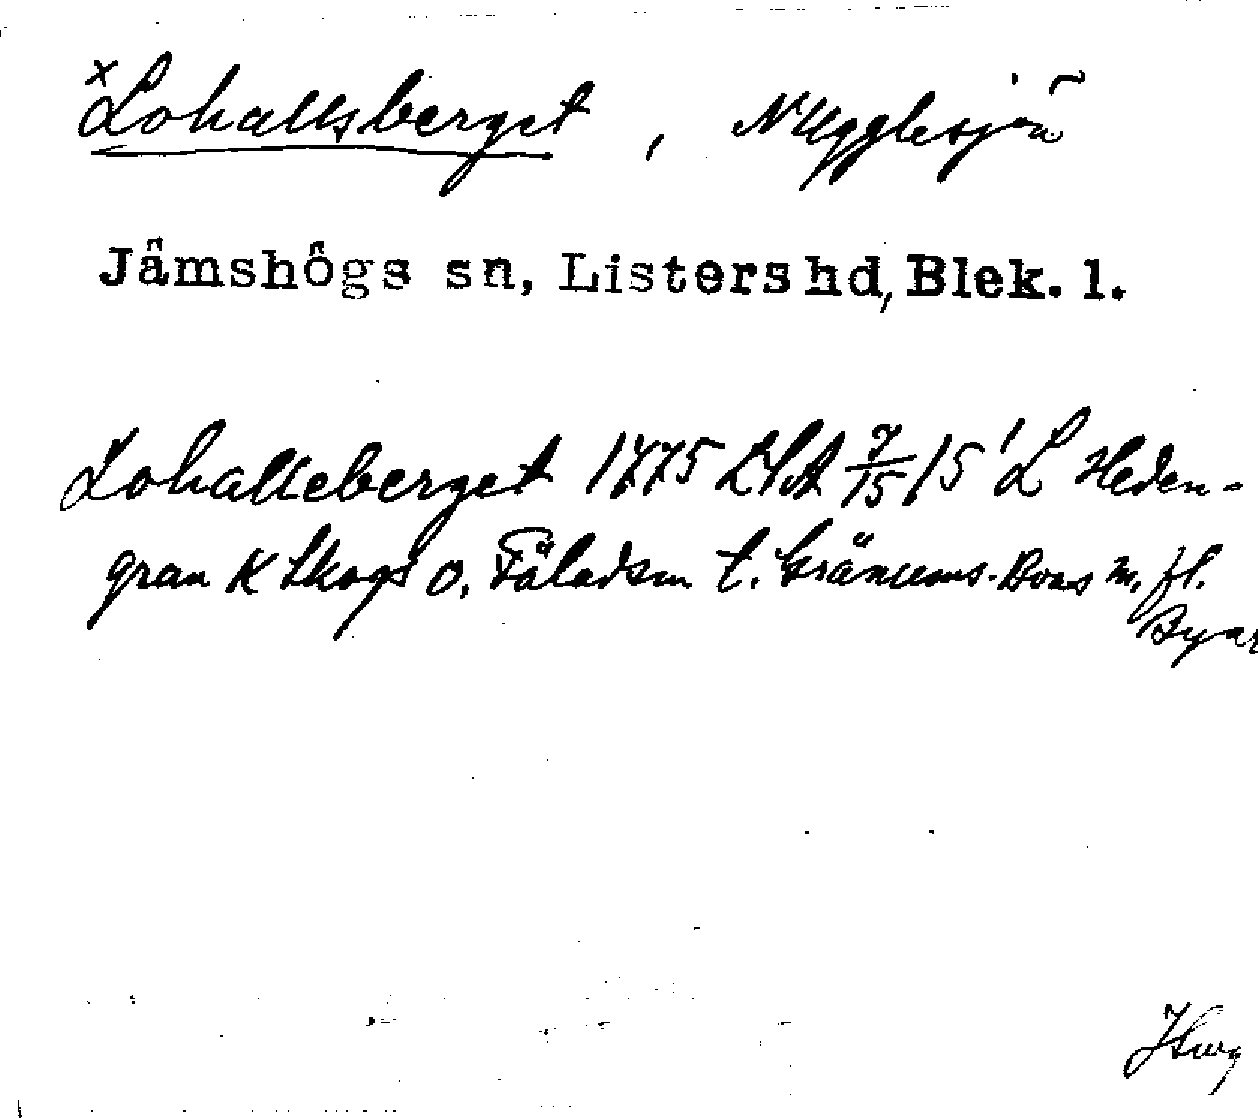 x Lohallsberget, N Ugglesjön
Jämshögs sn, Listers hd, Blek. l.
Lohalleberget 1775 LStA 7/15 15 L Heden-
gran K Skogs o. Fäladsm t. Gränums-Boas m. fl.
Byar